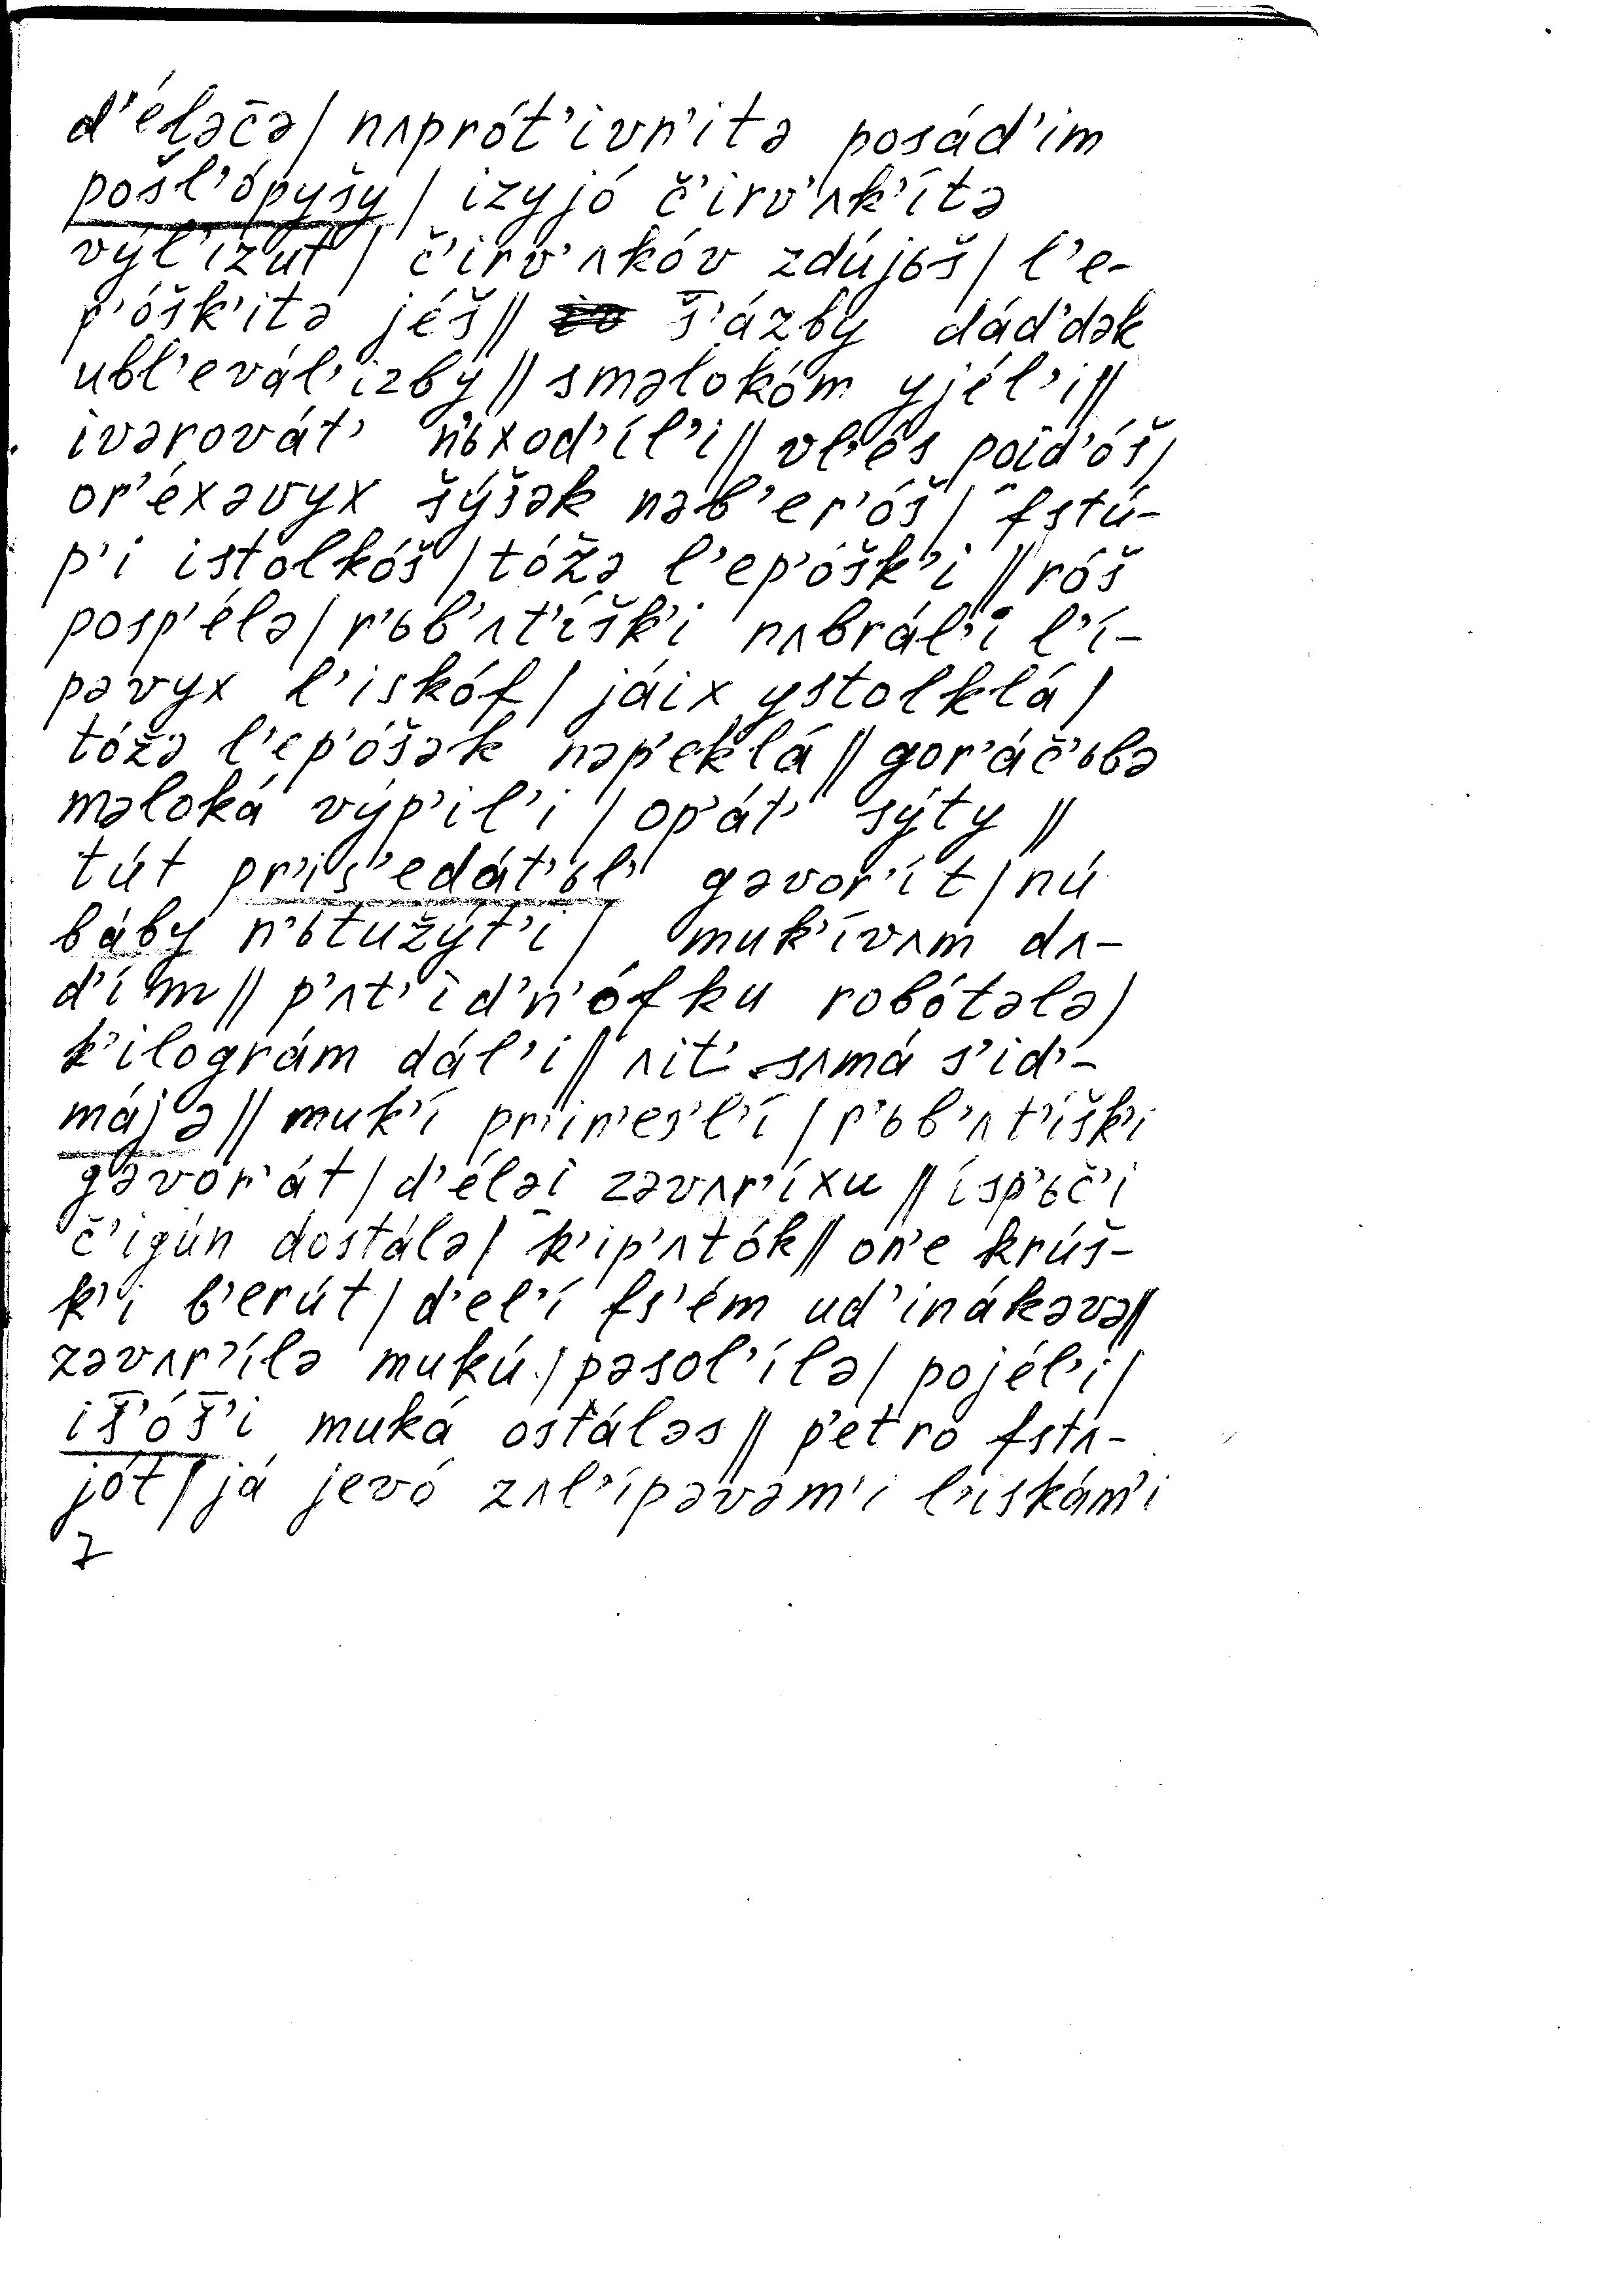 d’éləc̄ə/ nʌprót’ivn’itə posád’im
pošl’ópyšy/ izyjó č’irv’ʌk’ítə
výl’izut/ č’irv’ʌkóv zdújьš/ l’e-
p’óšk’itə jéš// š̄’ázby dád’dək
ubl’evál’izby// sməlokóm yjél’i//
ivərovát’ n’ьxod’íl’i// vl’és poid’óš/
or’éxəvyx šýšək nəb’er’óš/ fstú-
p’i istolkóš/ tóžə l’ep’óšk’i// róš
posp’élə/ r’ьb’ʌt’íšk’i nʌbrál’i l’í-
pəvyx l’iskóf/ jáix ystolklá/
tóžə l’ep’óšək nəp’eklá// gor’áč’ьbə
məloká výp’il’i/ op’át’ sýty//
tút pr’is’edát’ьl’ gəvor’ít/ nú
báby n’ьtužýt’i/ muk’ívʌm dʌ-
d’ím// p’ʌt’id’n’ófku robótələ/
k’ilográm dál’i// ʌit’ sʌmá s’id’-
májə// muk’í pr’in’es’l’í/ r’ьb’ʌt’íšk’i
gəvor’át/ d’éləi zəvʌr’íxu// ísp’ьč’i
č’igún dostálə/ k’ip’ʌtók// on’e krúš-
k’i b’erút/ d’el’í fs’ém ud’inákəvə//
zəvʌr’ílə mukú/ pəsol’ílə/ pojél’i/
iš̄’óš̄’i muká ostáləs// p’etro fstʌ-
jót/ já jevó zʌl’ípəvəm’i l’iskám’i
7